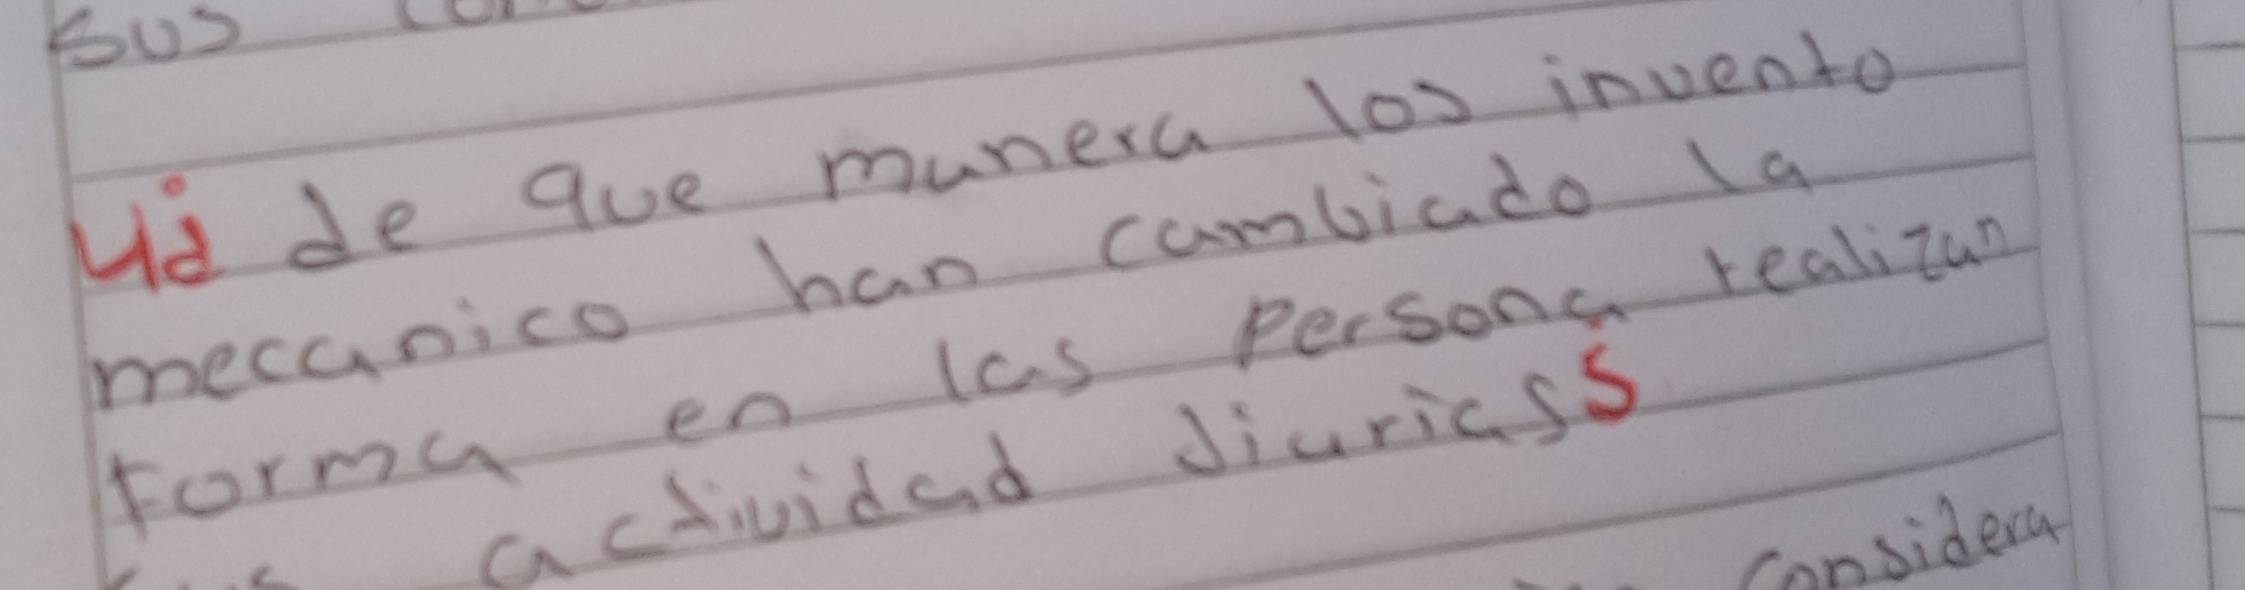 sus
¿de que manera los invento
mecanico han cambiado la
forma en las persona realizan
actividad diarias?
considera